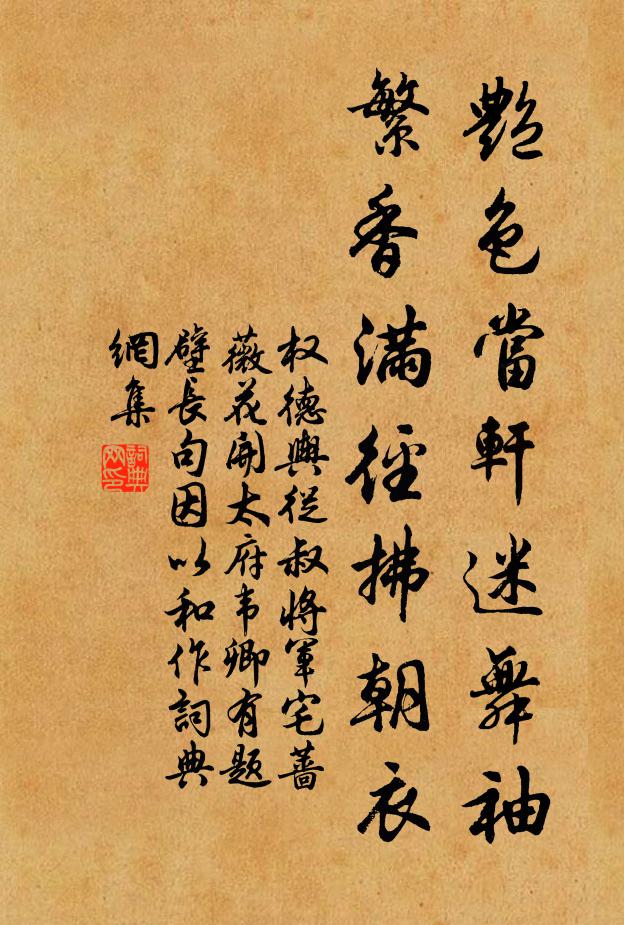 艷色當軒迷舞袖
繁香滿徑拂朝衣
权德輿從叔將軍宅薔
薇花開太府韦卿有题
壁長句因以和作詞典
網集
詞典
网印